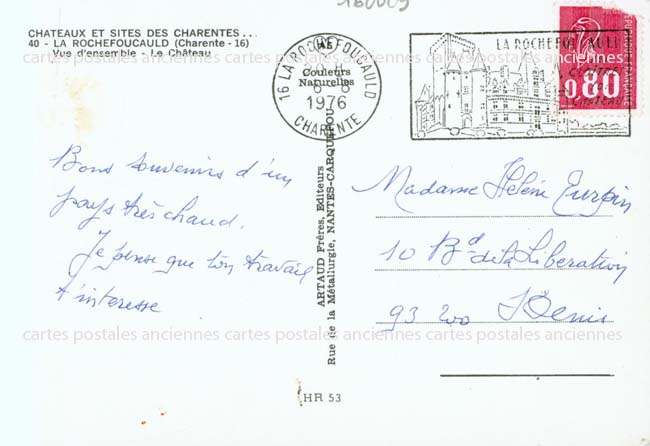 160009
CHATEAUX ET SITES DES CHARENTES...
40 - LA ROCHEFOUCAULD (Charente - 16)
Vue d'ensemble - Le Château
As
Couleurs
Naturelles
16 LA ROCHEFOUCAULD
1976
CHARENTE
LA ROCHEFOUCAULD
0,80
REPUBLIQUE FRANÇAISE
cartes postales anciennes cartes postales anciennes cartes postales anciennes
Bons souvenirs d'un
pays très chaud.
Je pense que ton travail
t'interesse
ARTAUD Frères, Editeurs
Rue de la Métallurgie, NANTES-CARQUEFOU
Madame Hélène Turpin
10 Bd de la Libération
93 200 S Denis
cartes postales anciennes cartes postales anciennes cartes postales anciennes
HR 53